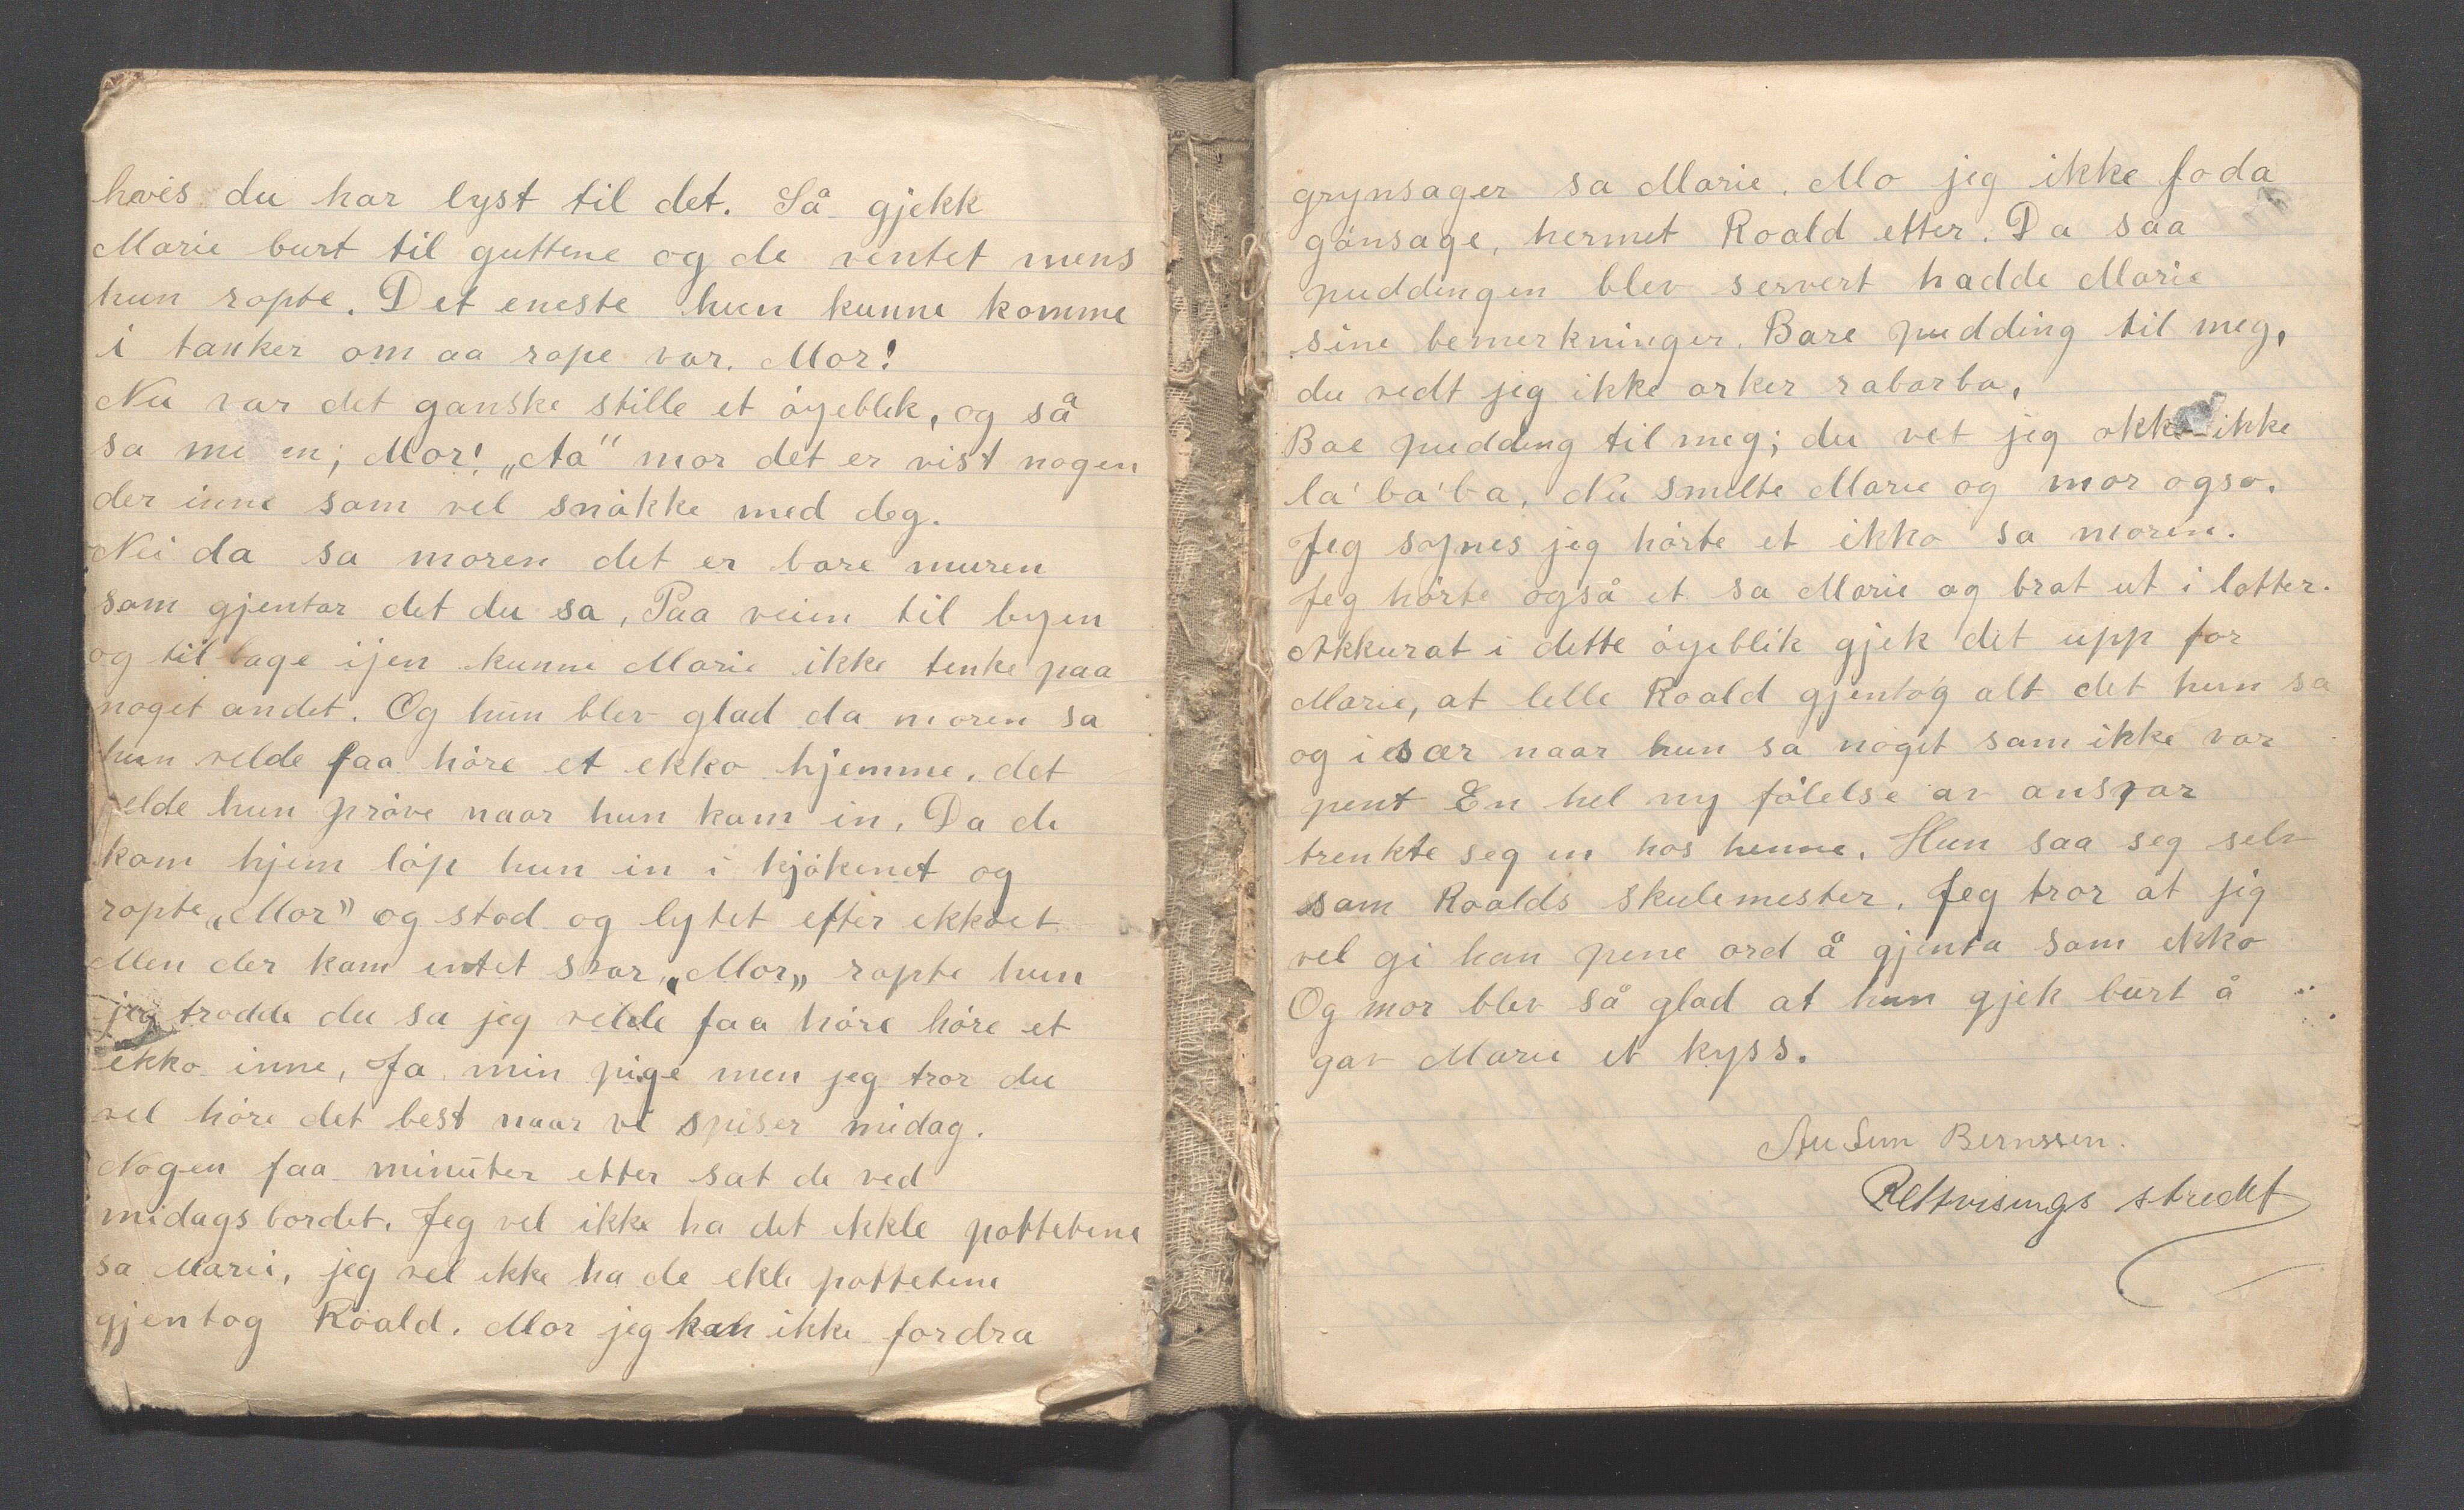 hvis du har lyst til det. Så gjekk
Marie burt til guttene og de ventet mens
hun ropte. Det eneste hun kunne komme
i tanker om aa rope var. Mor!
Nu var det ganske stille et öyeblik, og så
sa muren; Mor! „Aa" mor det er vist nogen
der inne som vel snakke med deg.
Nei da sa moren det er bare muren
som gjentar det du sa, Paa veien til byen
og tilbage ijen kunne Marie ikke tenke paa
noget andet. Og hun blev glad da moren sa
hun velde faa höre et ekko hjemme. det
velde hun pröve naar hun kam in. Da de
kom hjem löp hun in i kjökenet og
ropte „Mor" og stod og lytet efter ekkoet
Men der kam intet svar „Mor„ ropte hun
jeg trodde du sa jeg velde faa höre höre et
ekko inne, Ja min pige men jeg tror du
vel höre det best naar vi spiser midag.
Nogen faa minuter etter sat de ved
midagsbordet. Jeg vel ikke ha det ekkle pottetene
sa Marie, jeg vel ikke ha de ekle pottetene
gjentog Roald. Mor jeg kan ikke fordra
grynsager sa Marie. Mo jeg ikke foda
gönsage, hermet Roald etter. Da saa
puddingen blev servert hadde Marie
sine bemerkninger. Bare pudding til meg,
du vedt jeg ikke orker rabarba,
Bae pudding til meg; du vet jeg okke ikke
la'ba'ba. Nu smilte Marie og mor ogso.
Jeg sopnes jeg hörte et ekko sa moren.
Jeg hörte også et sa Marie og brat ut i lotter.
Akkurat i dette öyeblik gjek det upp for
Marie, at lelle Roald gjentog alt det hun sa
og i sær naar hun sa noget som ikke var
pent En hel ny fölelse av ansvar
trenkte seg en hos henne. Hun saa seg selv
som Roalds skulemester. Jeg tror at jeg
vel gi han pene ord å gjenta som ekko
Og mor blev så glad at hun gjek burt å
gav Marie et kyss.
Audun Bernssen.
Rettvisings stredet